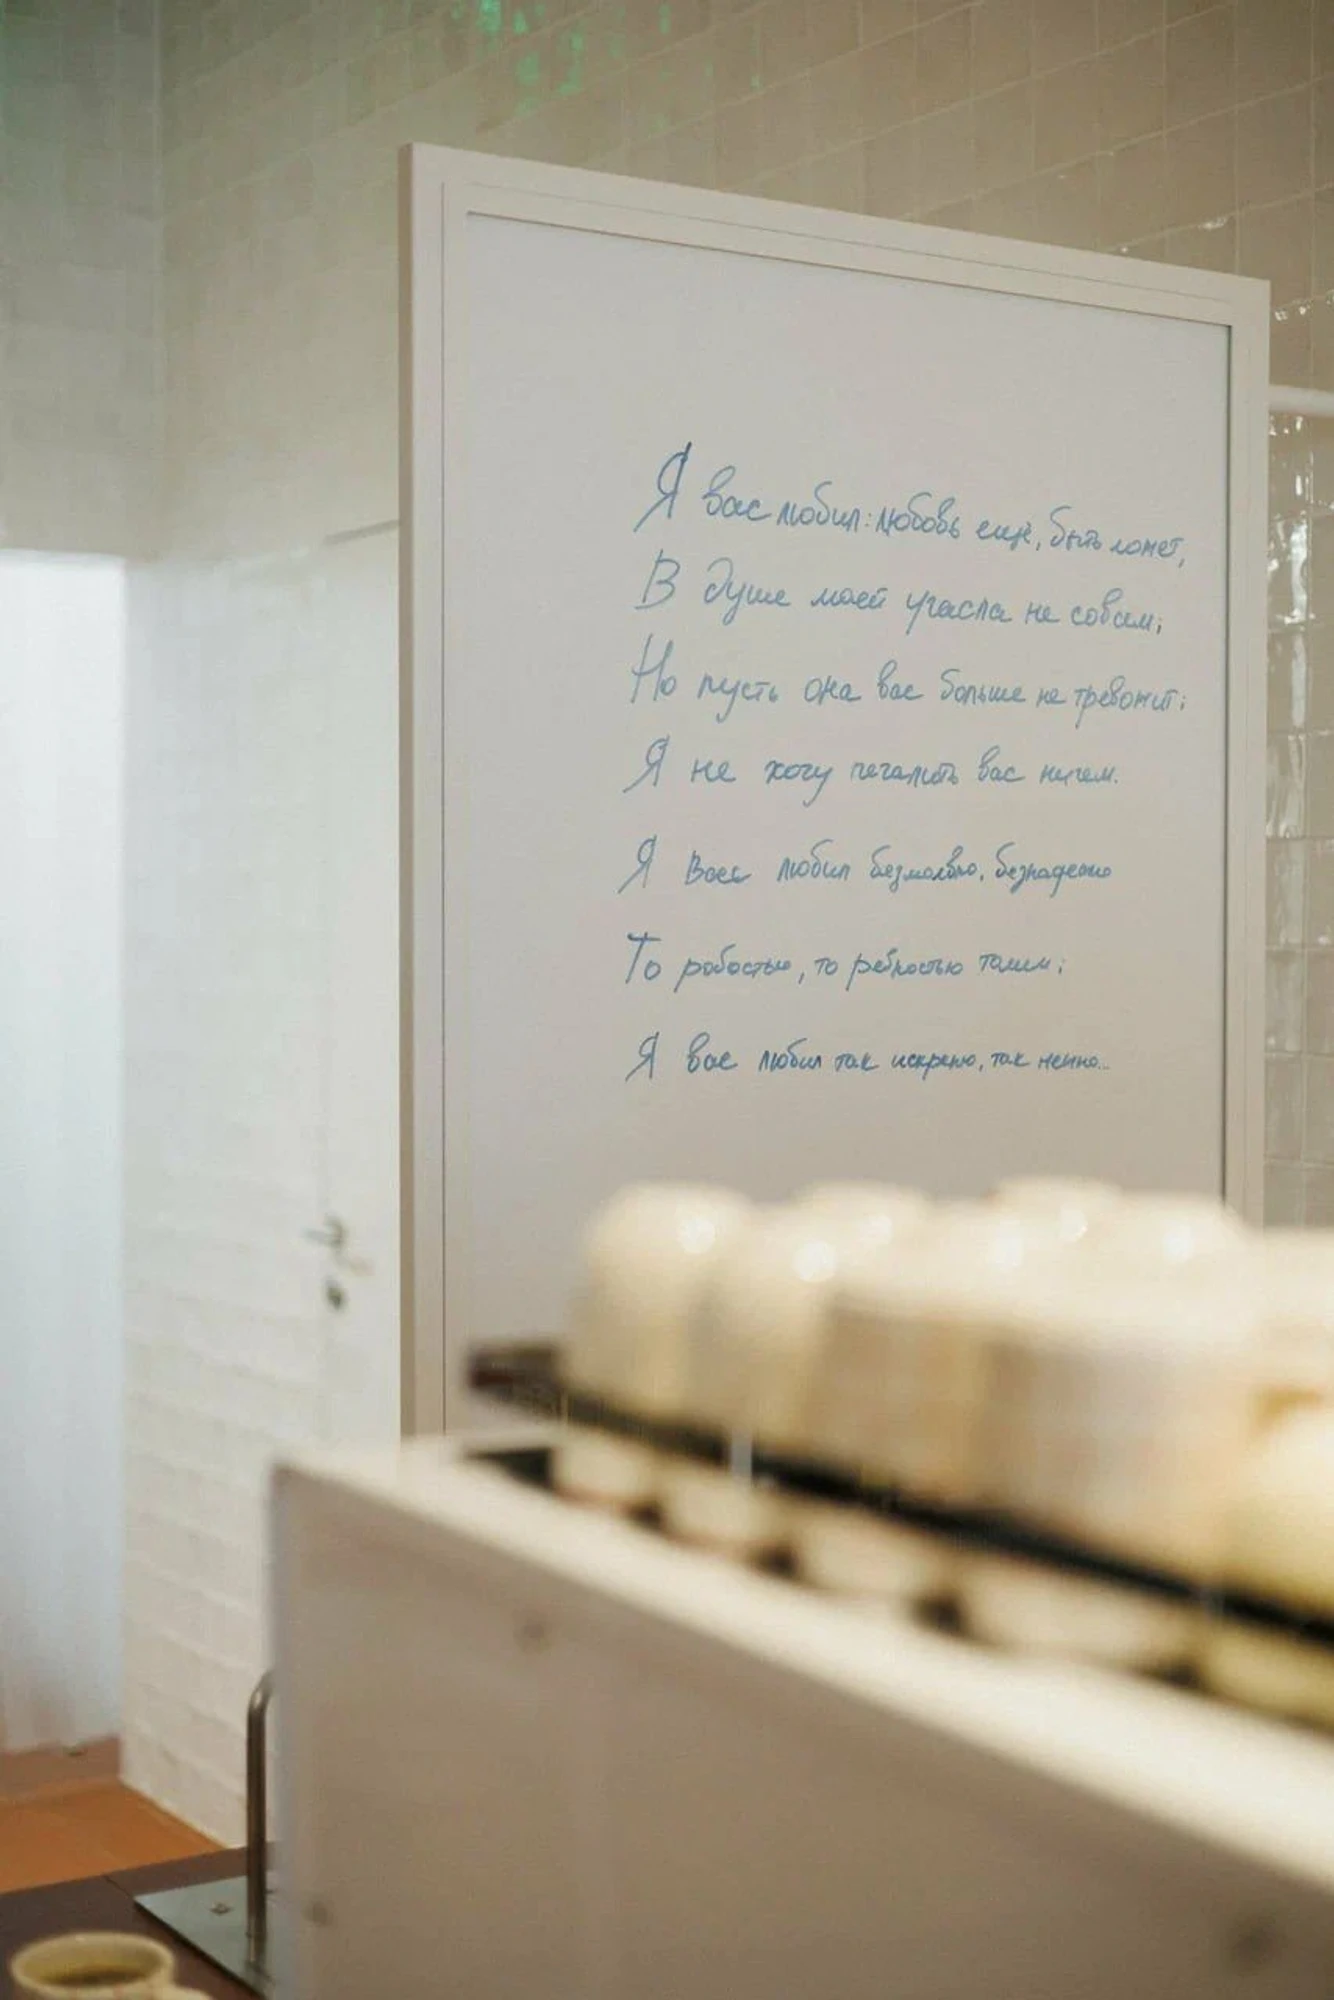 Я вас любил: любовь ещё, быть может,
В душе моей угасла не совсем;
Но пусть она вас больше не тревожит;
Я не хочу печалить вас ничем.
Я Вас любил безмолвно, безнадежно
То робостью, то ревностью томим;
Я вас любил так искренно, так нежно...